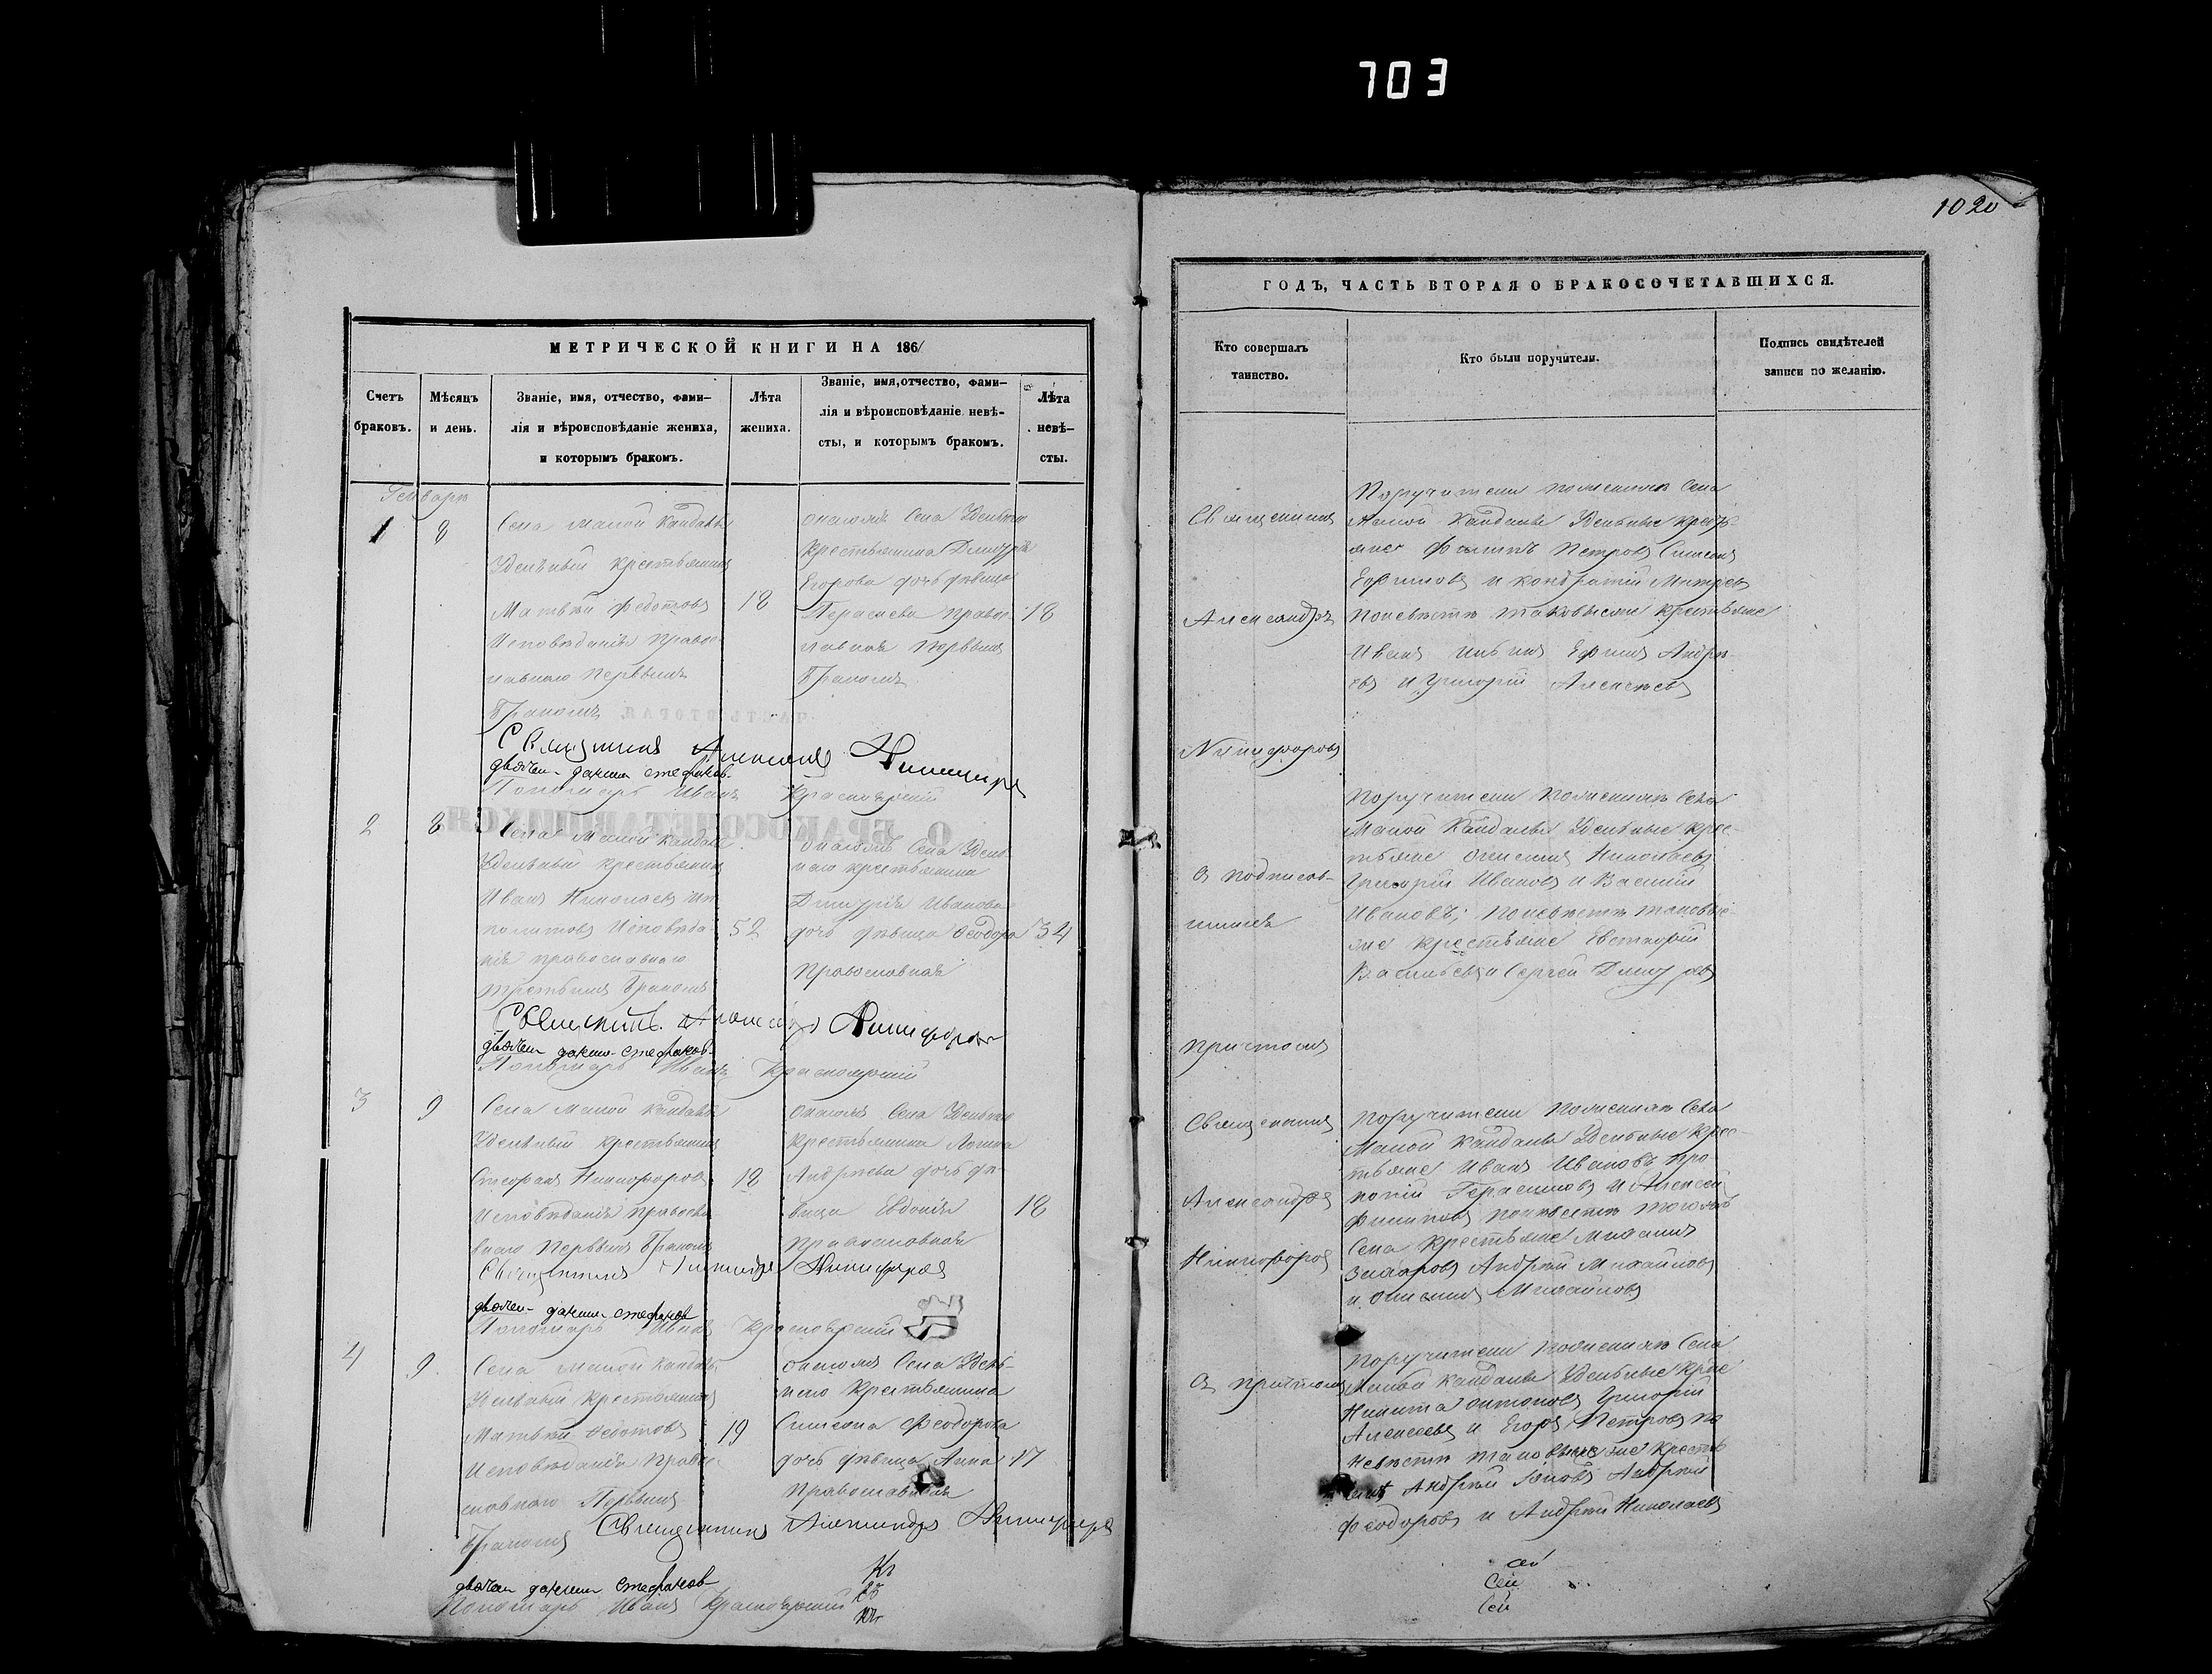 703
1020
МЕТРИЧЕСКОЙ КНИГИ НА 186/
Счетъ браковъ.
Мѣсяцъ и день.
Званіе, имя, отчество, фами-
лія и вѣроисповѣданіе жениха,
и которымъ бракомъ.
Лѣта жениха.
Званіе, имя, отчество, фами-
лія и вѣроисповѣданіе невѣ-
сты, и которымъ бракомъ.
Лѣта невѣ-
сты.
Генварь
1
8
Села Малой Кандалы
Удельный крестьянинъ
Матвѣй Федотовъ
Исповѣданія Правос-
лавнаго Первымъ
Бракомъ
18
Онагожъ Села Удельнаго
Крестьянина Дмитрія
Егорова дочь дѣвица
Правос-
лавная Первымъ
Бракомъ
18
Священникъ Александръ Никифоровъ
Пономарь Иванъ Красноярскій
2
8
Села Малой Кандалы
Удельный крестьянинъ
Иванъ Николаевъ Ип-
политовъ Исповѣда-
нія православнаго
третьимъ Бракомъ
52
Онагожъ Села Удель-
наго крестьянина
Дмитрія Иванова
дочь дѣвица Ѳеодора
Православная
34
Священникъ Александръ Никифоровъ
Пономарь Иванъ Красноярскій
3
9
Села Малой Кандалы
Удельный крестьянинъ
Стефанъ Никифоровъ
Исповѣданія Правосла-
внаго Первымъ Бракомъ
18
Онагожъ Села Удельнаго
Крестьянина
Андреева дочь дѣ-
вица Евдокія
Православная
18
Священникъ Александръ Никифоровъ
Пономарь Иванъ Красноярскій
4
9
Села Малой Кандалы
Удельный крестьянинъ
Матвѣй Ѳедотовъ
Исповѣданія Правос-
лавнаго Первымъ
Бракомъ
19
Онагожъ Села Удель-
наго Крестьянина
Симеона Ѳеодорова
дочь дѣвица Анна
Православная
17
Священникъ Александръ Никифоровъ
Пономарь Иванъ Красноярскій
ГОДЪ, ЧАСТЬ ВТОРАЯ О БРАКОСОЧЕТАВШИХСЯ.
Кто совершалъ
таинство.
Кто были поручители.
Подпись свидѣтелей
записи по желанію.
Священникъ
Александръ
Никифоровъ
Поручители по женихѣ Села
Малой Кандалы Удельные крестъ-
яне Филипъ Петровъ Симеонъ
Ефимовъ и Кондратій
По невѣстѣ таковыеже крестьяне
Иванъ Ильинъ Ефимъ Андре-
евъ и Григорій Алексѣевъ
Съ подписав-
шимся
причтомъ
Поручители По женихѣ Села
Малой Кандалы Удельные крес-
тьяне Николаевъ
Григорій Ивановъ и Василій
Ивановъ; По невѣстѣ таковые-
же крестьяне Евстафій
Васильевъ и Сергей
Священникъ
Александръ
Никифоровъ
Поручители По женихѣ Села
Малой Кандалы Удельные крес-
тьяне Иванъ Ивановъ Про-
копій Герасимовъ и Алексей
Филиповъ По невѣстѣ тогожъ
Села Крестьяне Михаилъ
Захаровъ Андрей Михайловъ
и Михайловъ
Съ причтомъ
Поручители По женихѣ Села
Малой Кандалы Удельные крес
Никита Антоновъ Григорій
Алексеевъ и Егоръ Петровъ По
невѣстѣ таковые же крестья
Андрей Андрей
Ѳеодоровъ и Андрей Николаевъ